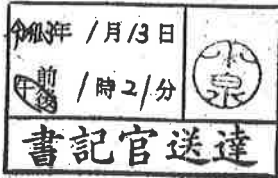 令和3年 1月13日
午前後 1時21分
小泉
書記官送達